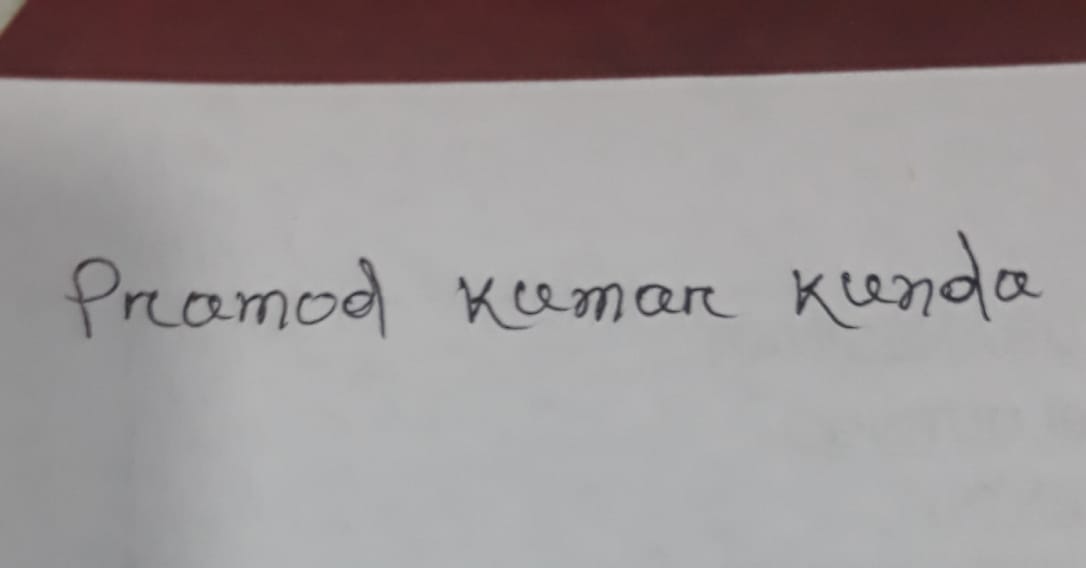 Pramod Kumar Kunda